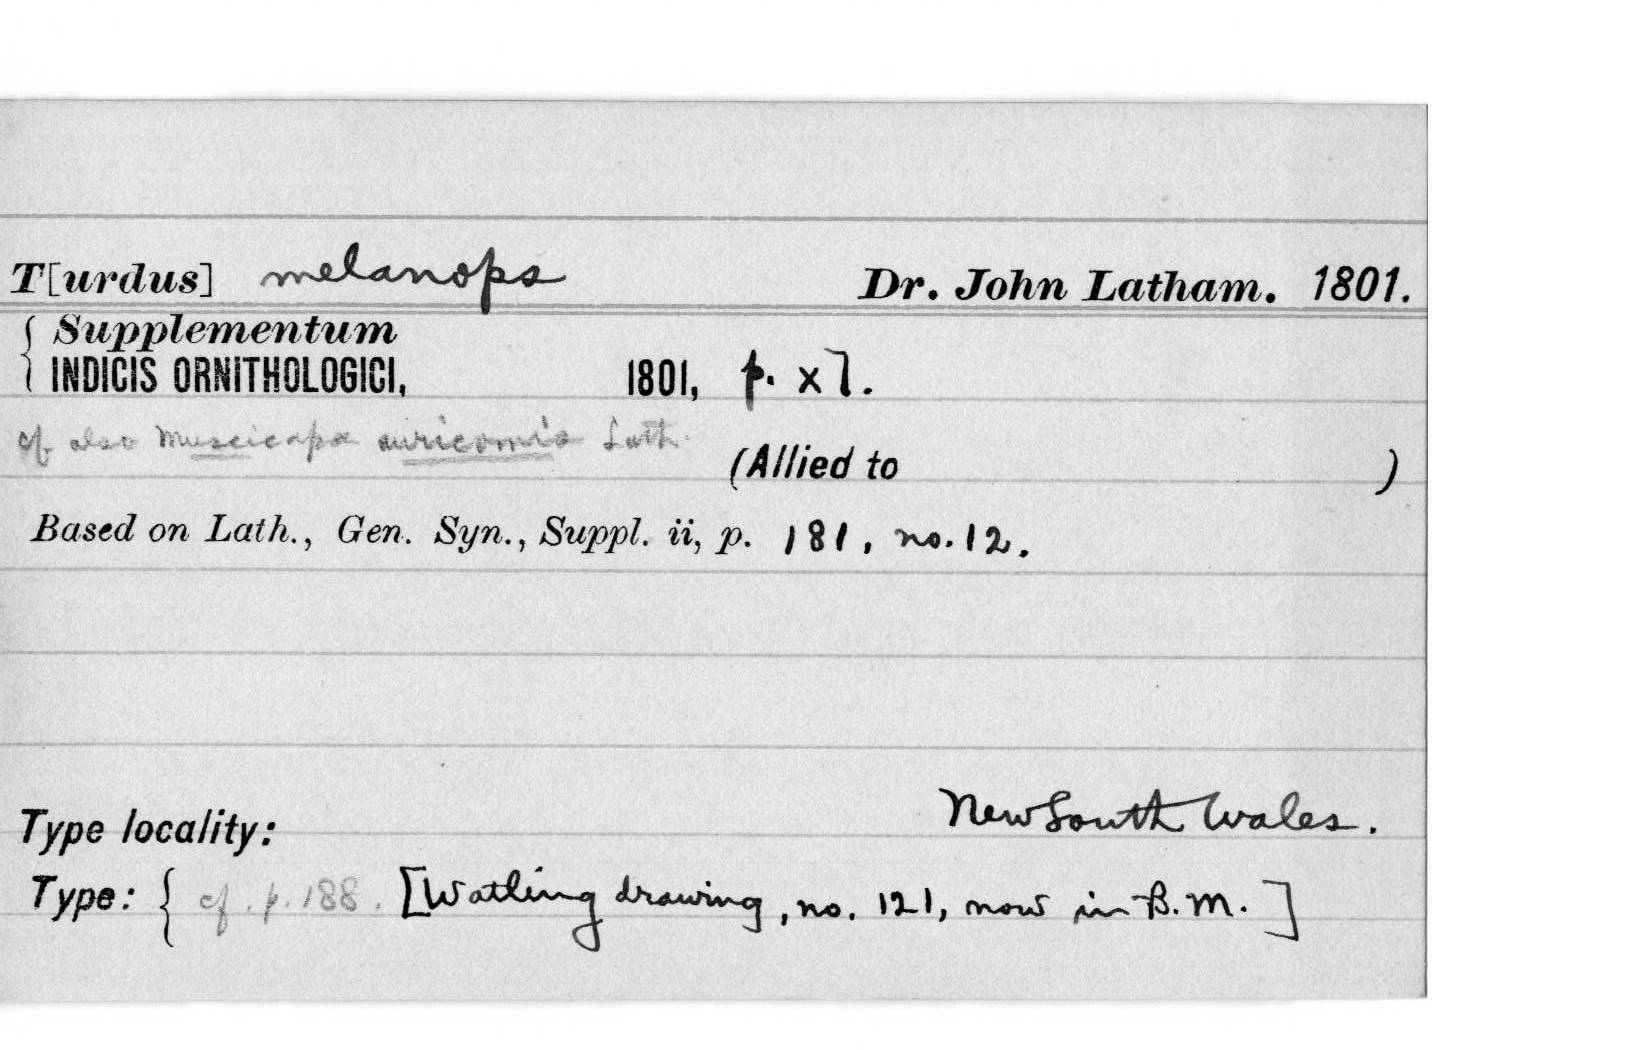 T[urdus] melanops Dr. John Latham. 1801.
{ Supplementum
INDICIS ORNITHOLOGICI, 1801, p. xl.
cf also Muscicapa auricomis Lath.
(Allied to )
Based on Lath., Gen. Syn., Suppl. ii, p. 181, no. 12.
New South Wales.
Type locality:
Type: { cf. p. 188. [Watling drawing, no. 121, now in B.M.]